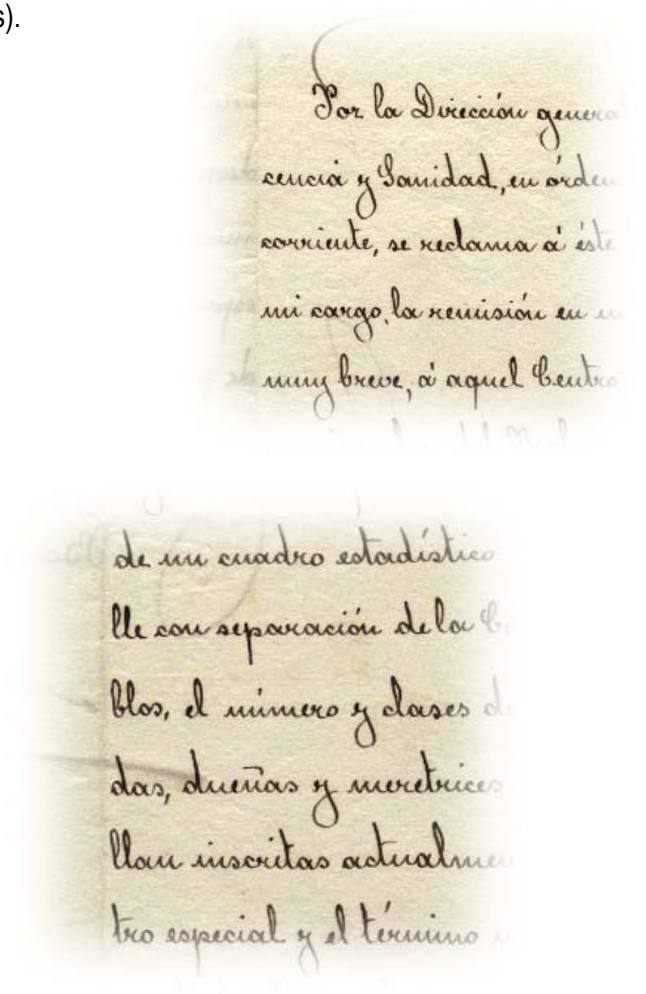 s).
Por la Dirección general
cencia y Sanidad, en órden
corriente, se reclama á éste
mi cargo, la remisión en
muy breve, á aquel Centro
de un cuadro estadístico
lle con separación de la
blos, el número y clases de
das, dueñas y meretrices
llan inscritas actualmen
tro especial y el término